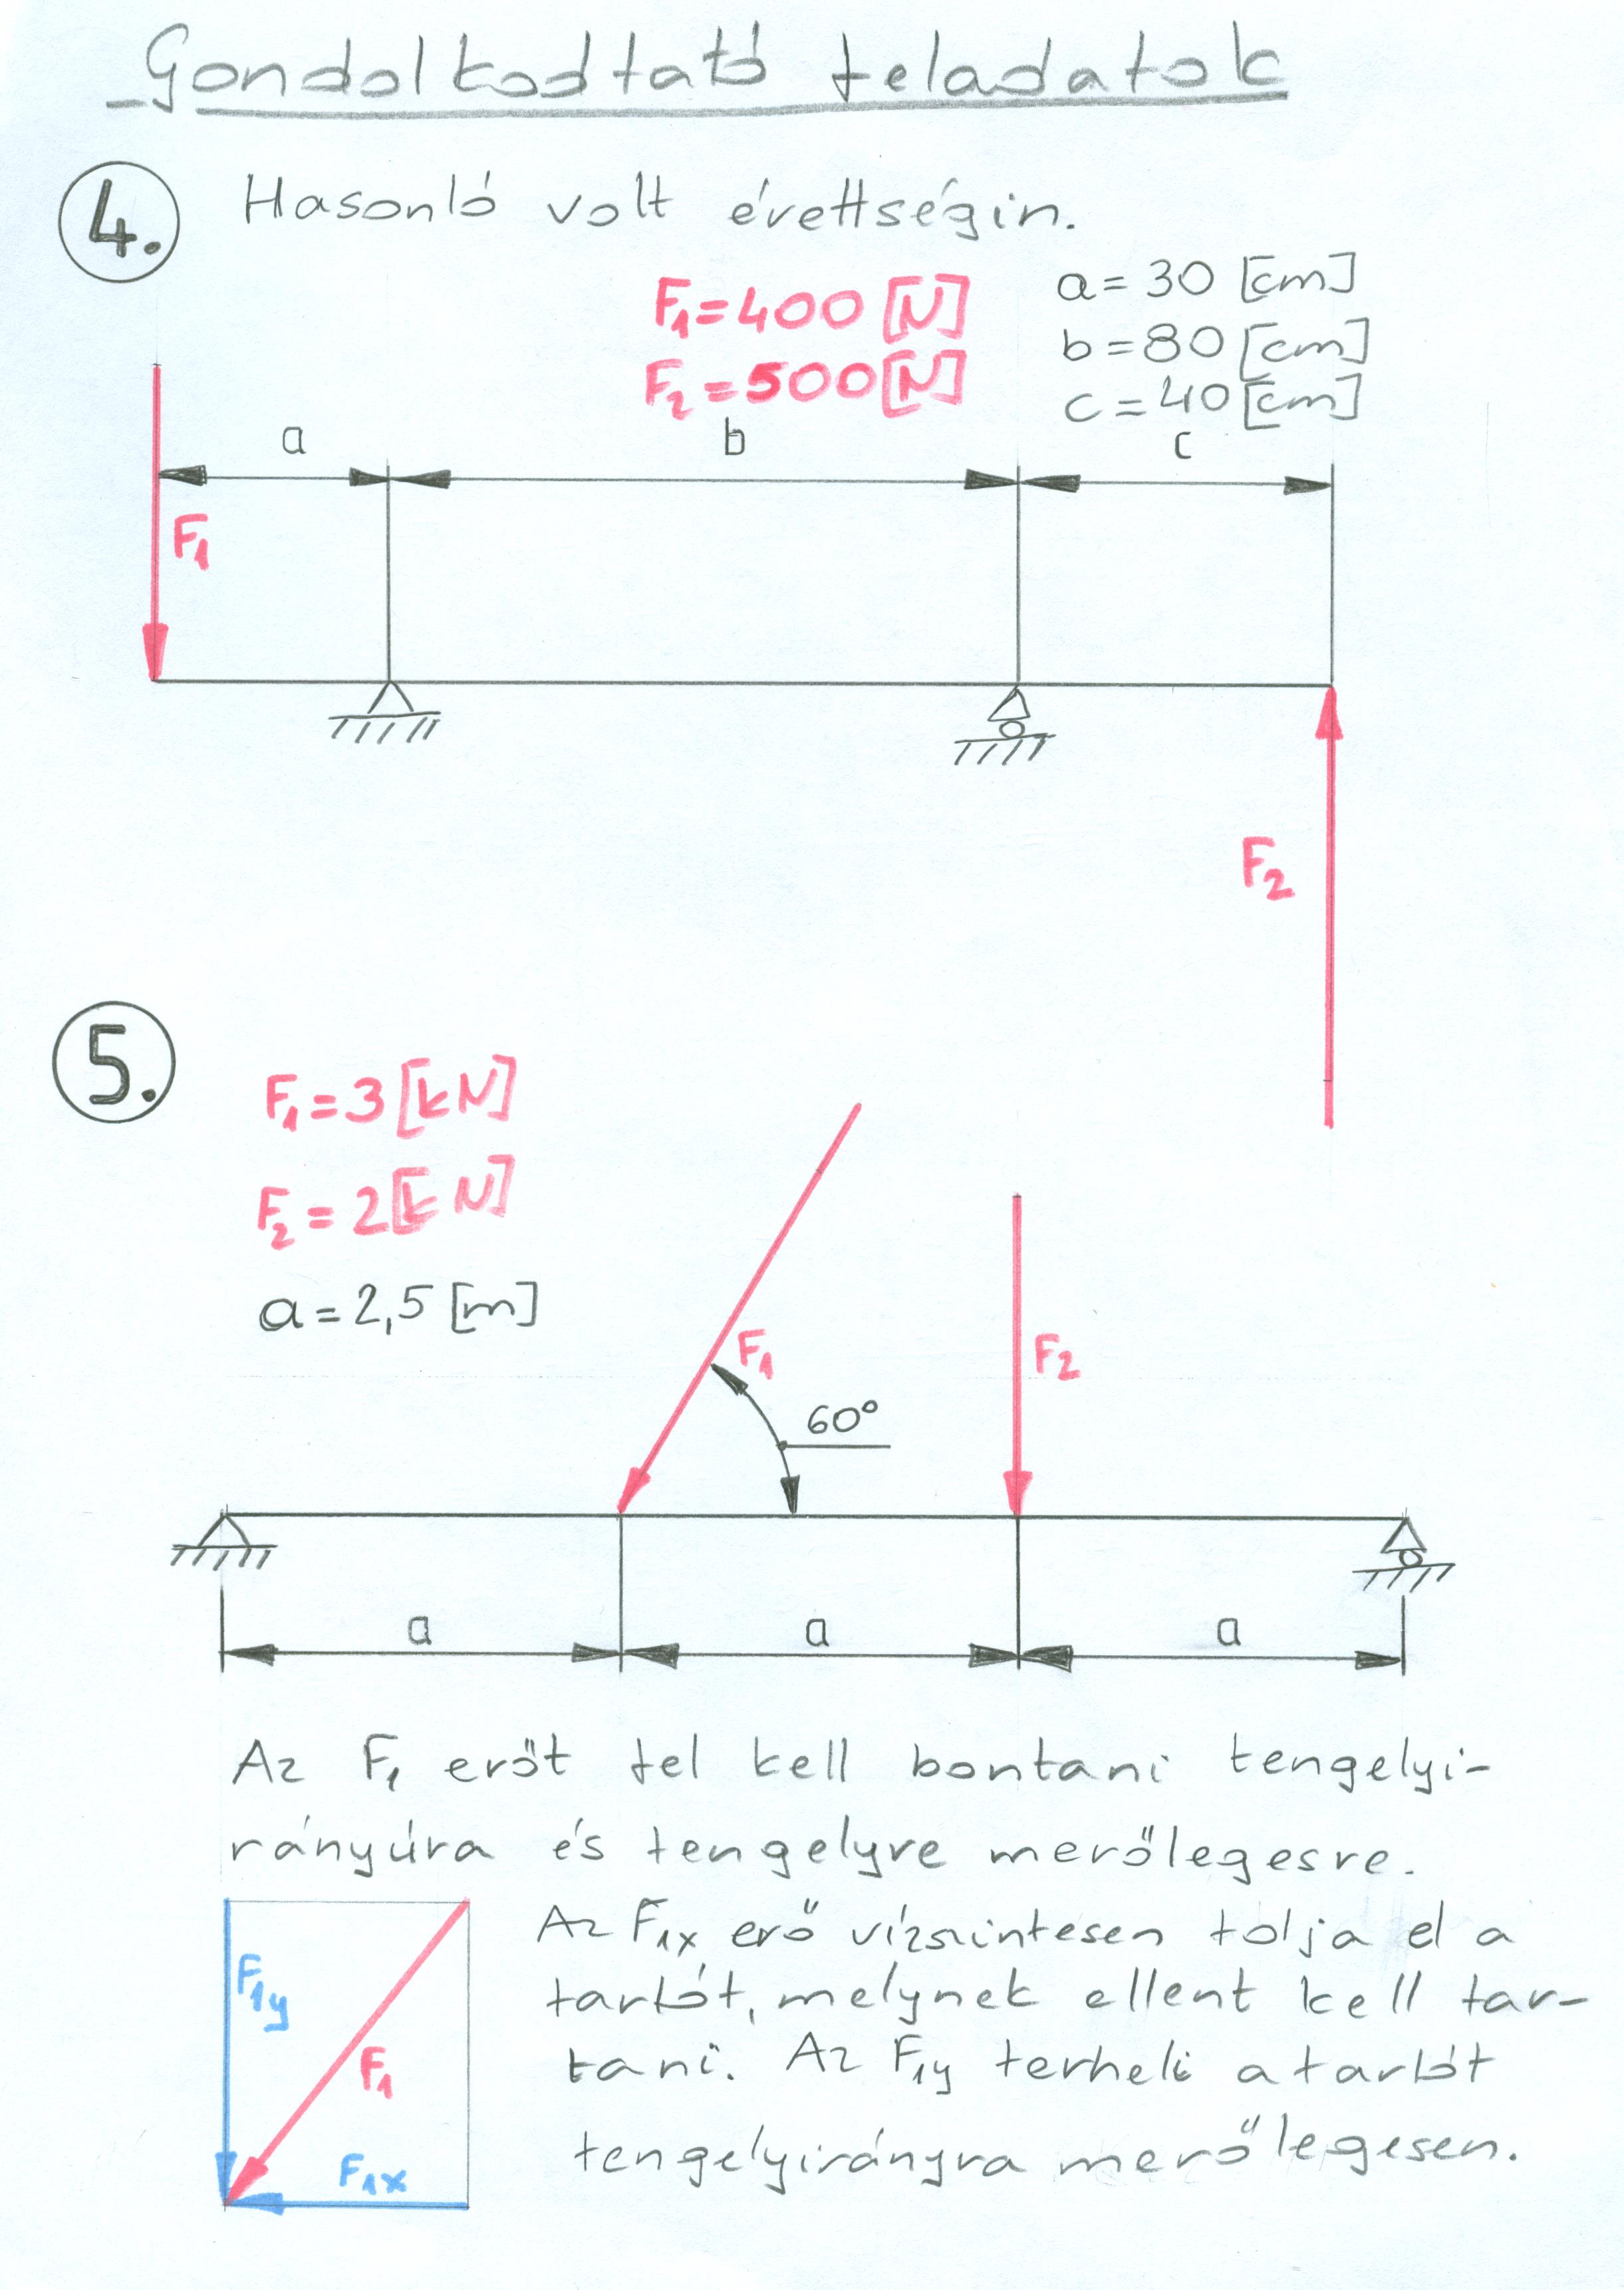 Gondolkodtató feladatok
4. Hasonló volt érettségin.
F1=400 [N]
F2=500 [N]
a=30 [cm]
b=80 [cm]
c=40 [cm]
a b c
F1
F2
5.
F1=3 [kN]
F2=2 [kN]
a=2,5 [m]
F1
F2
60°
a a a
Az F1 erőt fel kell bontani tengelyi-
rányúra és tengelyre merőlegesre.
Az F1x erő vízszintesen tolja el a
tartót, melynek ellent kell tar-
tani. Az F1y terheli a tartót
tengelyirányra merőlegesen.
F1y
F1
F1x